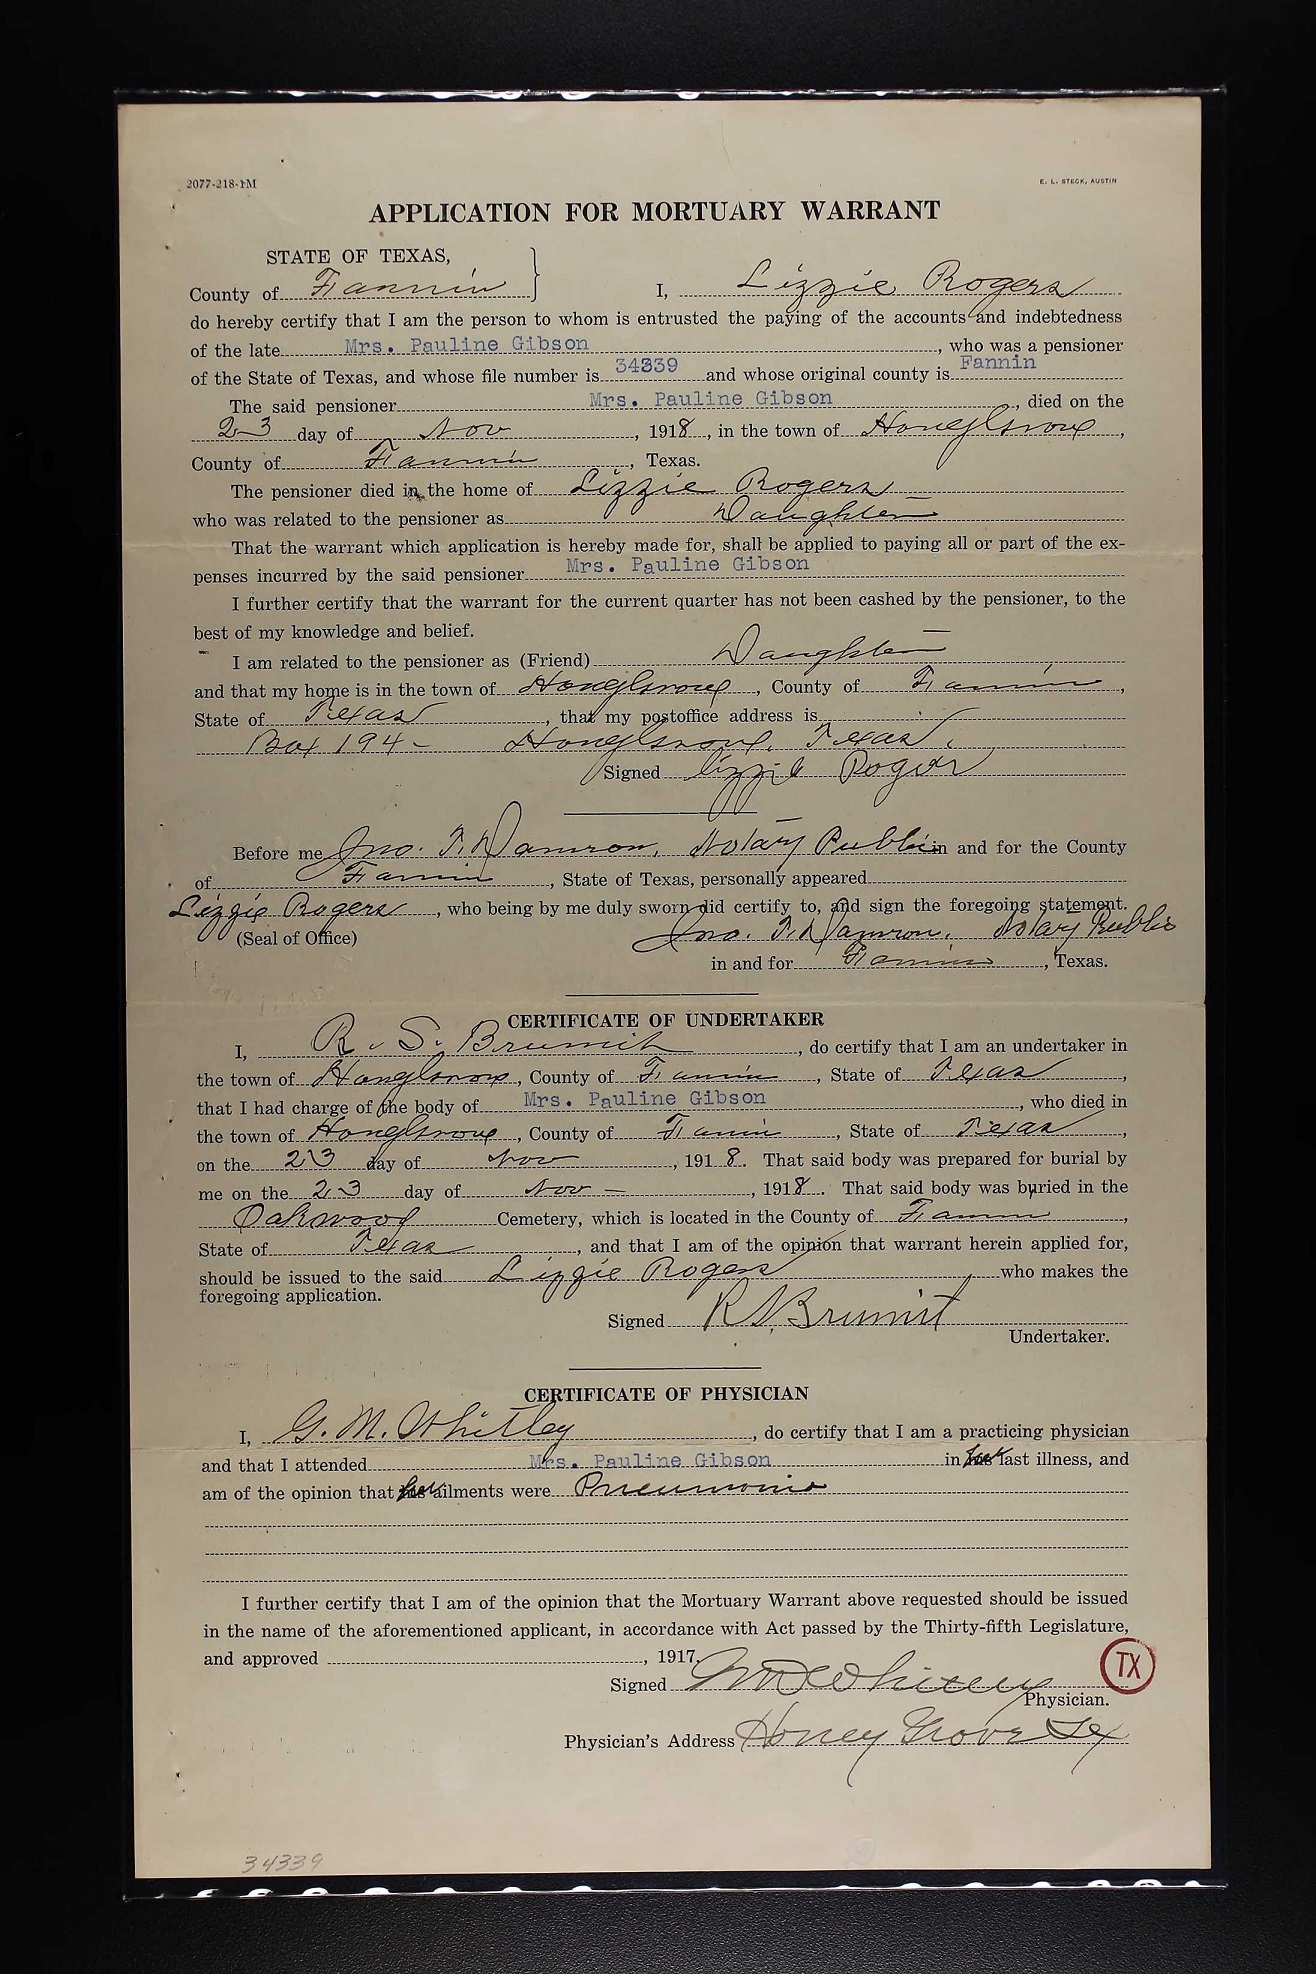 2077-218-1M
E. L. STECK, AUSTIN
APPLICATION FOR MORTUARY WARRANT
STATE OF TEXAS,
County of Fannin } I, Lizzie Rogers
do hereby certify that I am the person to whom is entrusted the paying of the accounts and indebtedness
of the late Mrs. Pauline Gibson, who was a pensioner
of the State of Texas, and whose file number is 34339 and whose original county is Fannin
The said pensioner Mrs. Pauline Gibson, died on the
23 day of Nov, 1918, in the town of HoneyGrove,
County of Fannin, Texas.
The pensioner died in the home of Lizzie Rogers
who was related to the pensioner as Daughter
That the warrant which application is hereby made for, shall be applied to paying all or part of the ex-
penses incurred by the said pensioner Mrs. Pauline Gibson
I further certify that the warrant for the current quarter has not been cashed by the pensioner, to the
best of my knowledge and belief.
I am related to the pensioner as (Friend) Daughter
and that my home is in the town of HoneyGrove, County of Fannin,
State of Texas, that my postoffice address is
Box 194 - HoneyGrove, Texas.
Signed Lizzie Roger
Before me Jno. F. Damron, Notary Public in and for the County
of Fannin, State of Texas, personally appeared
Lizzie Rogers, who being by me duly sworn did certify to, and sign the foregoing statement.
(Seal of Office) Jno. F. Damron, Notary Public
in and for Fannin, Texas.
CERTIFICATE OF UNDERTAKER
I, R. S. Brumit, do certify that I am an undertaker in
the town of HoneyGrove, County of Fannin, State of Texas,
that I had charge of the body of Mrs. Pauline Gibson, who died in
the town of HoneyGrove, County of Fannin, State of Texas,
on the 23 day of Nov, 1918. That said body was prepared for burial by
me on the 23 day of Nov -, 1918. That said body was buried in the
Oakwood Cemetery, which is located in the County of Fannin,
State of Texas, and that I am of the opinion that warrant herein applied for,
should be issued to the said Lizzie Rogers who makes the
foregoing application.
Signed R S. Brumit
Undertaker.
CERTIFICATE OF PHYSICIAN
I, G. M. Whitley, do certify that I am a practicing physician
and that I attended Mrs. Pauline Gibson in her last illness, and
am of the opinion that her ailments were Pneumonia
I further certify that I am of the opinion that the Mortuary Warrant above requested should be issued
in the name of the aforementioned applicant, in accordance with Act passed by the Thirty-fifth Legislature,
and approved , 1917.
TX
Signed GM Whitley
Physician.
Physician's Address Honey Grove Tex
34339